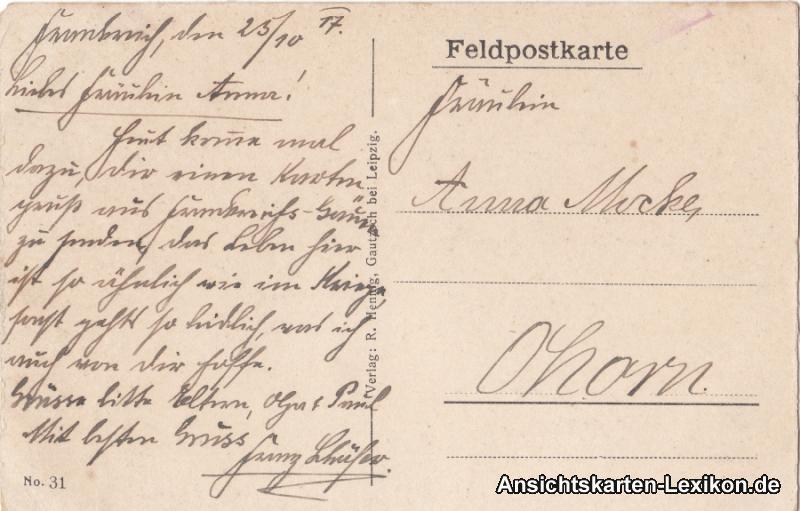 Frankreich, den 23/10 17.
Liebes Fräulein Anna!
Heut komme mal
dazu, dir einen Karten
gruß aus Frankreichs-Gauen
zu senden, das Leben hier
ist so ähnlich wie im Kriege,
sonst gehts so leidlich, was ich
auch von dir hoffe.
Grüsse bitte Eltern, Olga & Paul
Mit besten Gruss
Franz
No. 31
Verlag: R. Hennig, Gautzsch bei Leipzig.
Feldpostkarte
Fräulein
Anna Mocke,
Ohorn.
Ansichtskarten-Lexikon.de